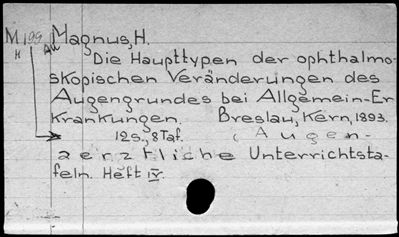 M 199 Au Magnus, H.
H
Die Haupttypen der ophthalmo-
skopischen Veränderungen des
Augengrundes bei Allgemein-Er
krankungen. Breslau, Kern, 1893.
12S., 8 Taf. (Augen-
aerztliche Unterrichtsta-
feln. Heft IV.